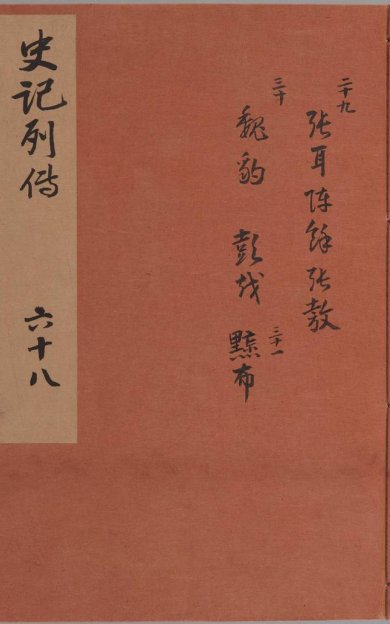 史记列传 六十八
二十九
张耳 陈馀 张敖
三十
魏豹 彭越
三十一
黥布